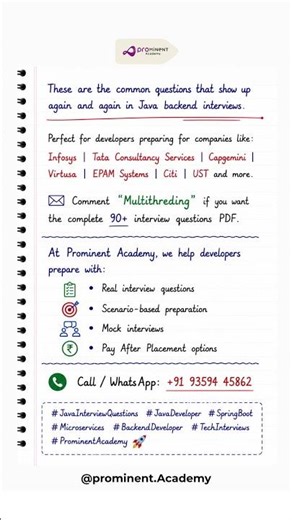 prominent
Academy
These are the common questions that show up
again and again in Java backend interviews.
Perfect for developers preparing for companies like:
Infosys | Tata Consultancy Services | Capgemini |
Virtusa | EPAM Systems | Citi | UST and more.
Comment "Multithreding" if you want
the complete 90+ interview questions PDF.
At Prominent Academy, we help developers
prepare with:
• Real interview questions
• Scenario-based preparation
• Mock interviews
₹ • Pay After Placement options
Call / WhatsApp: +91 93594 45862
#JavaInterviewQuestions #JavaDeveloper #SpringBoot
#Microservices #BackendDeveloper #TechInterviews
#ProminentAcademy 🚀
@prominent.Academy